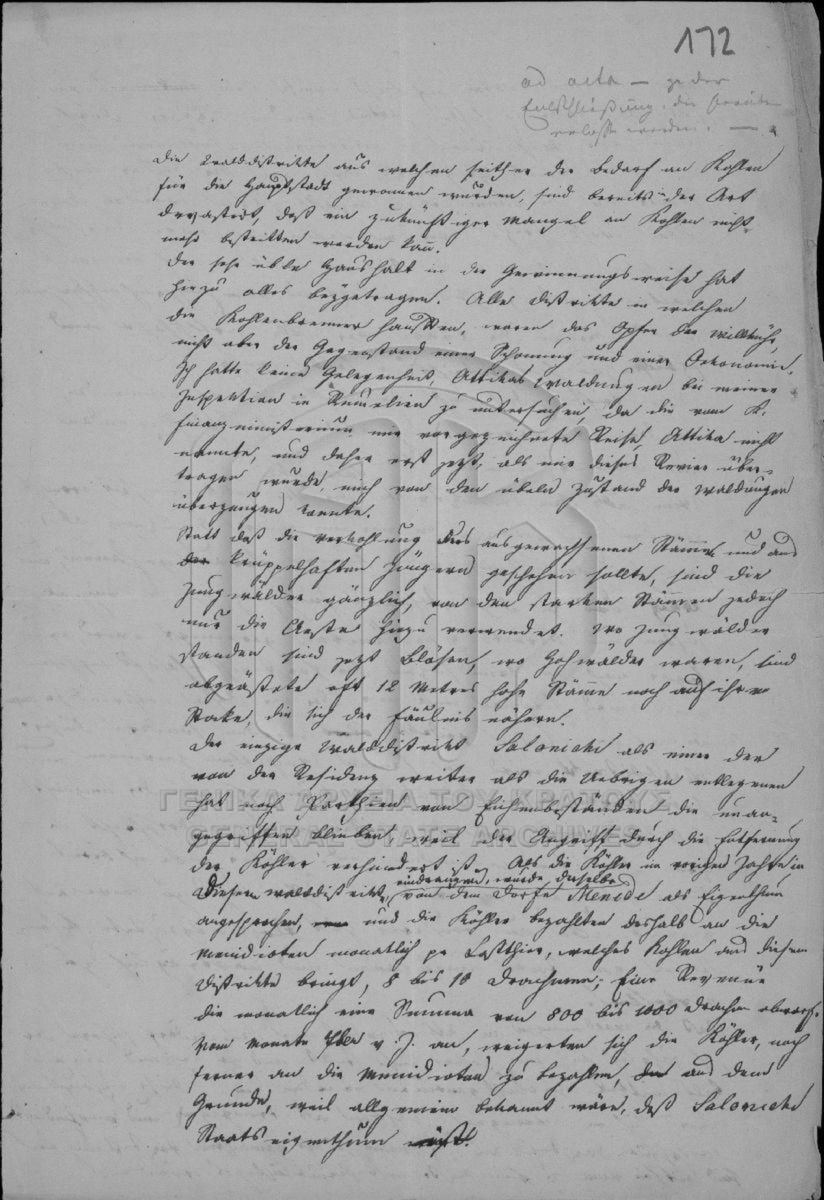 172
ad acta — zu der
Entschließung, die
erlassen worden. —
Die Walddistrikte aus welchen seither der Bedarf an Kohlen
für die Hauptstadt genommen wurden, sind bereits in der Art
devastirt, daß ein zukünftiger Mangel an Kohlen nicht
mehr bestritten werden kann.
Der sehr üble Haushalt in der Gewinnungsweise hat
hiezu alles beygetragen. Alle Distrikte in welchen
die Kohlenbrenner hausten, waren das Opfer der Willkühr,
nicht aber der Gegenstand einer Schonung und einer Oekonomie.
Ich hatte keine Gelegenheit, Attikas Waldungen bei meiner
Inspektion in Rumelien zu untersuchen, da die vom K.
Finanzministerium mir vorgezeichnete Reise, Attika nicht
nannte, und daher erst jetzt, als mir dieses Revier über-
tragen wurde, mich von den übeln Zustand der Waldungen
überzeugen konnte.
Statt daß die Verkohlung aus ausgewachsenen Stämmen und aus
der krüppelhaften jüngern geschehen sollte, sind die
Jungwälder gänzlich, von den starken Stämmen jedoch
nur die Aeste hiezu verwendet. Wo Jungwälder
standen sind jetzt Blösen, wo Hochwälder waren, sind
abgeästete oft 12 Metres hohe Stämme noch auf ihrem
Stoke, die sich der Fäulnis nähern.
Der einzige Walddistrikt Salonichi als einer der
von der Residenz weiter als die Uebrigen entlegenen
hat noch Parthien von Eichenbeständen die unan-
gegriffen blieben, weil der Angriff durch die Entfernung
der Köhler verhindert ist. Als die Köhler im vorigen Jahre in
eindrangen, wurde derselbe
diesem Walddistrikt, von dem Dorfe Menidi als Eigenthum
angesprochen, und die Köhler bezahlten deshalb an die
Menidioten monatlich pr Lastthier, welches Kohlen aus diesem
Distrikte bringt, 8 bis 10 Drachmen; Eine Revenüe
die monatlich eine Summa von 800 bis 1000 Drachm abwarf.
Vom Monate 7ber v. J. an, weigerten sich die Köhler, noch
ferner an die Menidioten zu bezahlen, aus dem
Grunde, weil allgemein bekannt wäre, daß Salonichi
Staatseigenthum
ΓΕΝΙΚΑ ΑΡΧΕΙΑ ΤΟΥ ΚΡΑΤΟΥΣ
GENERAL STATE ARCHIVES